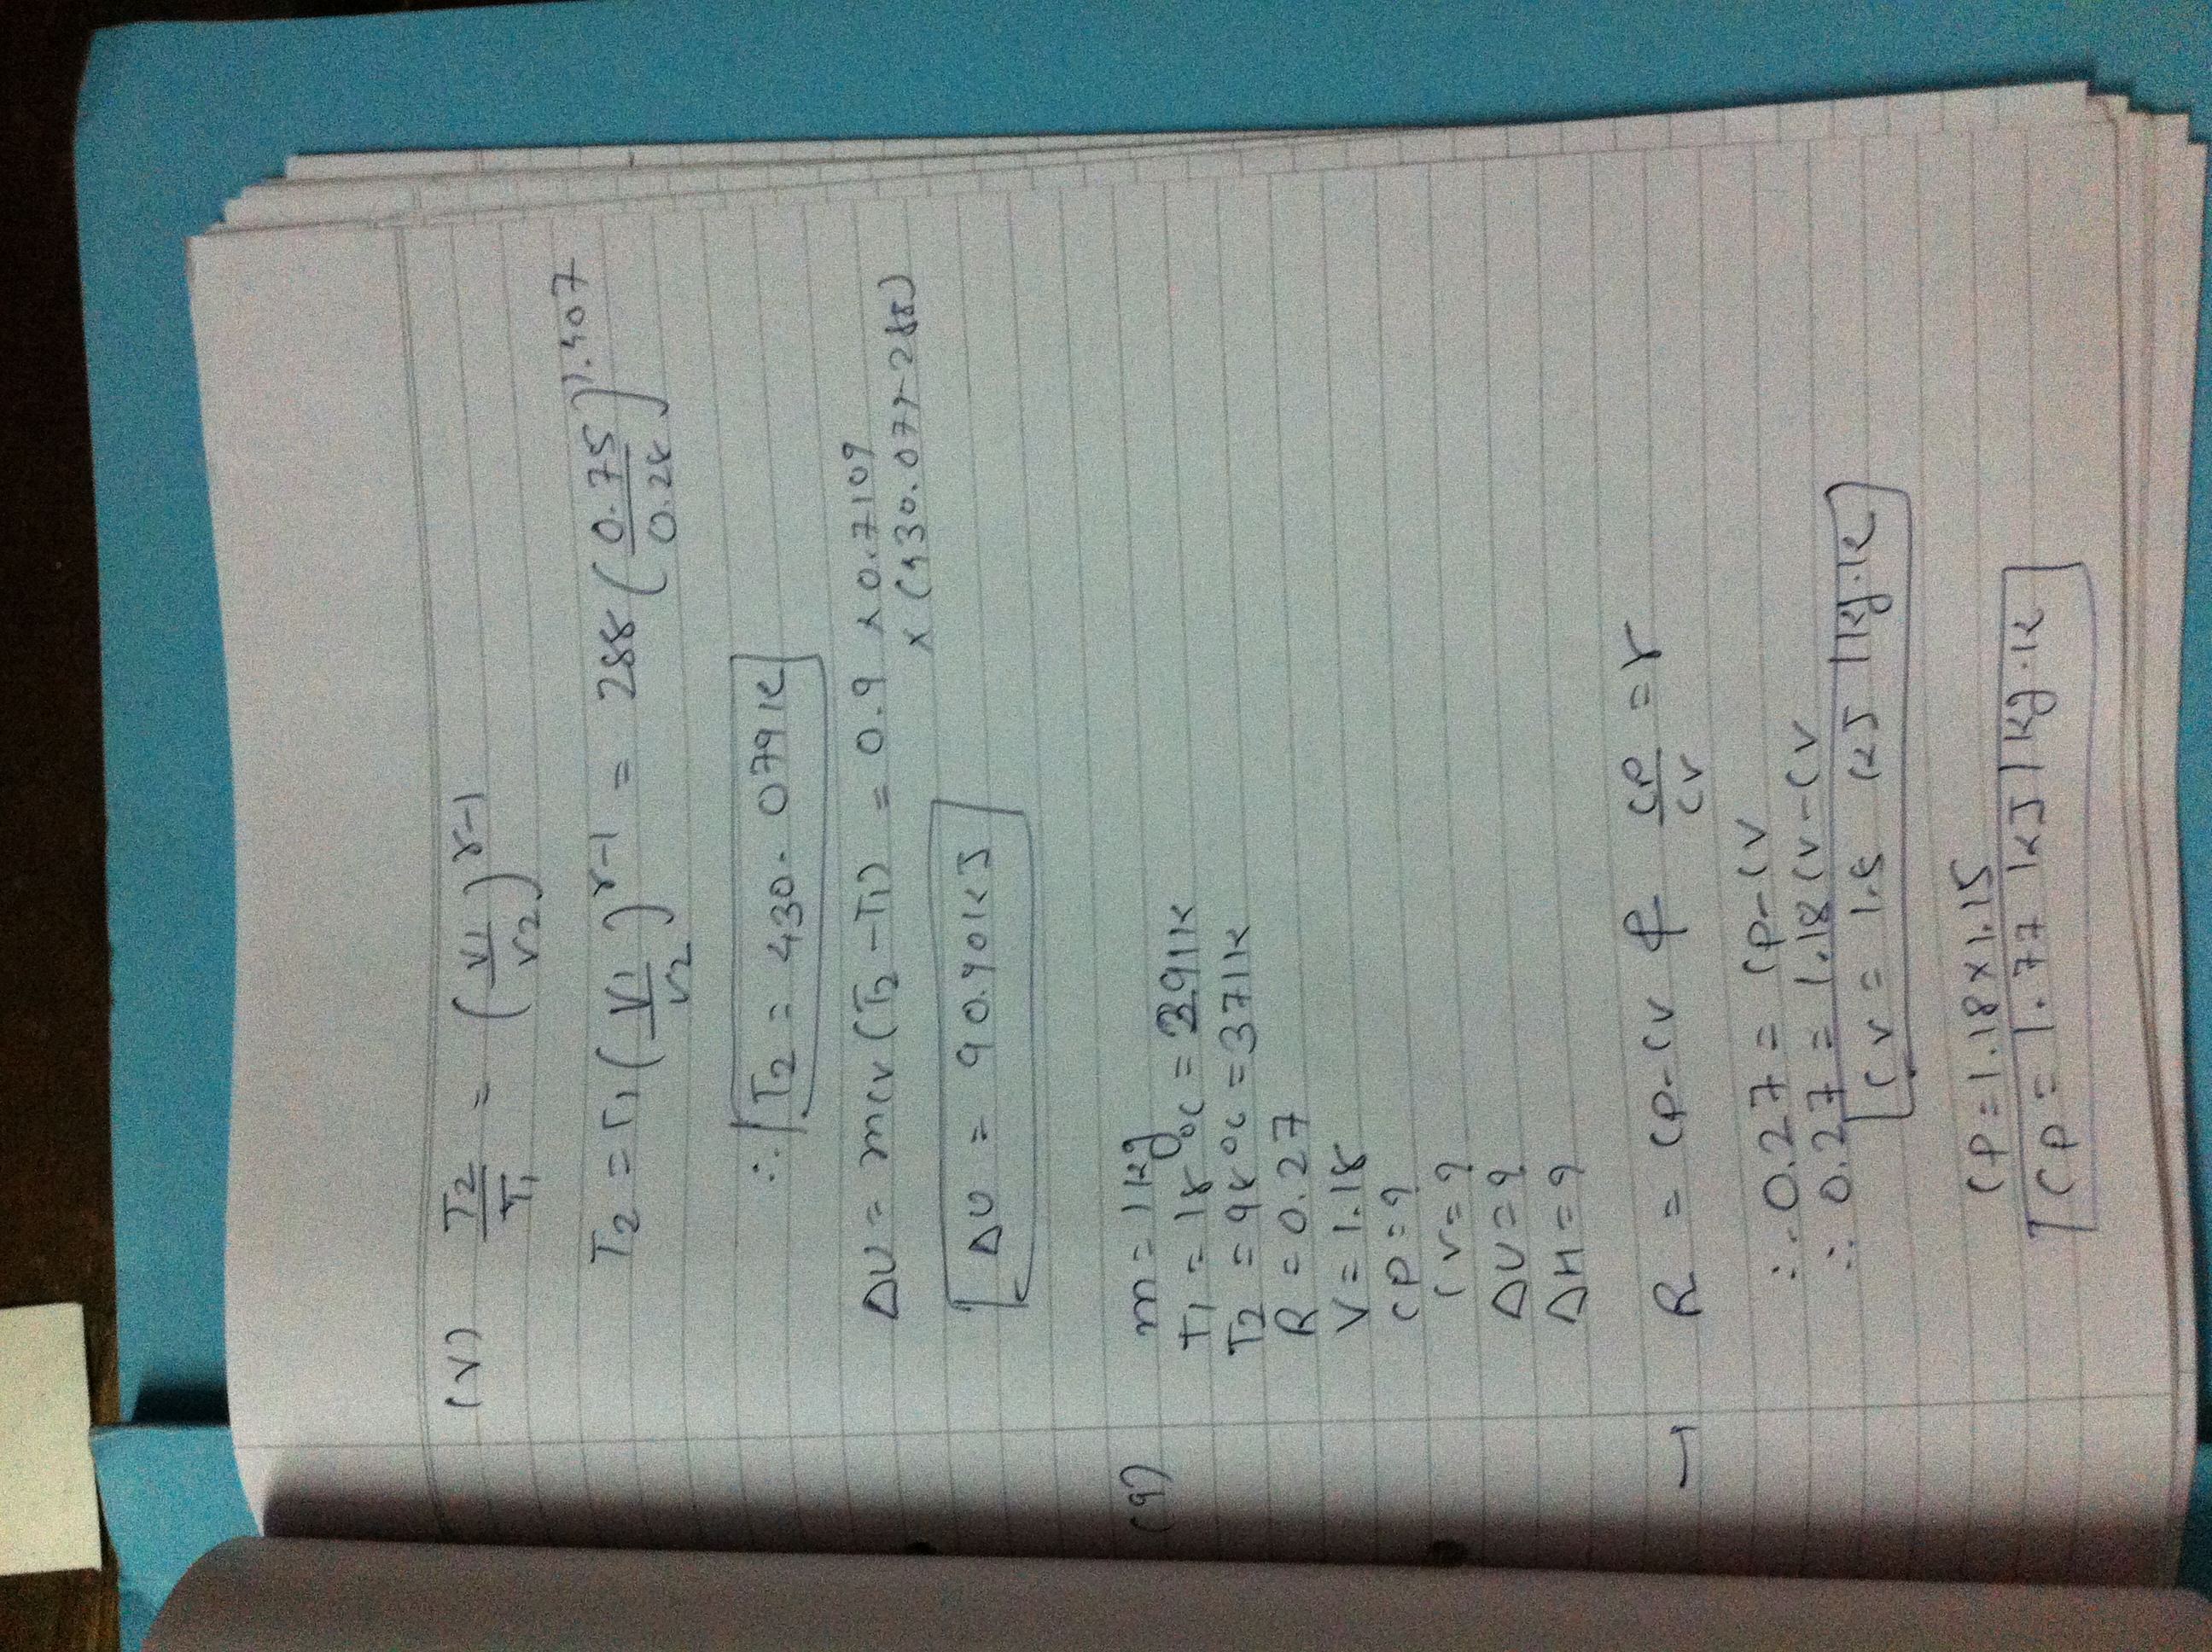 (V) T2/T1 = (V1/V2)^γ-1
T2 = T1 (V1/V2)^γ-1 = 288 (0.75/0.28)^1.407
∴ T2 = 430.079 K
ΔU = mcv (T2 - T1) = 0.9 × 0.7109
× (430.079-288)
ΔU = 90.90 KJ
(9) m = 1 kg
T1 = 18 °C = 291 K
T2 = 98 °C = 371 K
R = 0.27
γ = 1.18
CP = ?
CV = ?
ΔU = ?
ΔH = ?
→ R = CP - CV & CP/CV = γ
∴ 0.27 = CP - CV
∴ 0.27 = 1.18 CV - CV
CV = 1.5 KJ / kg.K
CP = 1.18 × 1.15
CP = 1.77 KJ / kg.K